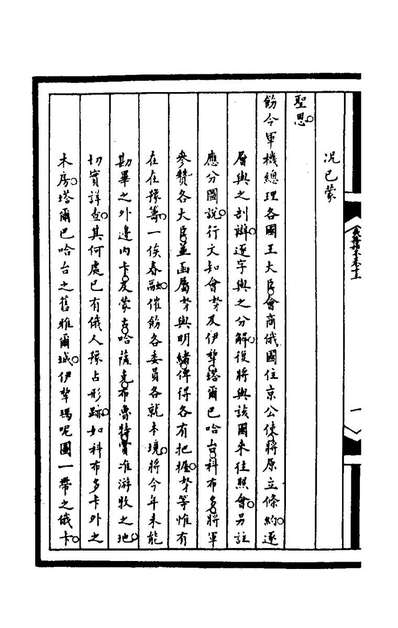 況已蒙
聖恩
飭令軍機總理各國王大臣會商俄國住京公使將原立條約逐
層與之剖辯逐字與之分解復將與該國來往照會另註
應分圖說行文知會才及伊犂塔爾巴哈台科布多將軍
參贊各大臣並函屬才與明緒俾得各有把握才等惟有
在在豫籌一俟春融催飭各委員各就本境將今年未能
勘畢之外邊內卡倫蒙古哈薩克布魯特實准游牧之地
切實詳查其何處已有俄人豫占形跡如科布多卡外之
木房塔爾巴哈台之舊雅爾城伊犂瑪呢圖一帶之俄卡
一